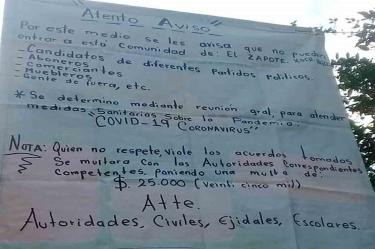 "Atento Aviso"
Por este medio se les avisa que no pueden
entrar a esta comunidad de: EL ZAPOTE,
- Candidatos de diferentes Partidos Politicos.
- Aboneros
- Comerciantes
- Muebleros
- Gente de fuera, etc.
* Se determino mediante reunión gral, para atender
medidas Sanitarias Sobre la Pandemia.
"COVID-19 CORONAVIRUS"
NOTA: Quien no respete, viole los acuerdos tomados
Se multara con las Autoridades Correspondientes
Competentes, poniendo una multa de
$. 25.000 (Veinti cinco mil)
Atte.
Autoridades, Civiles, Ejidales, Escolares.